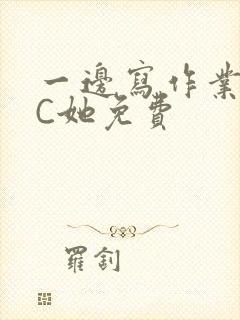 一邊寫作業
C她免費
羅釗